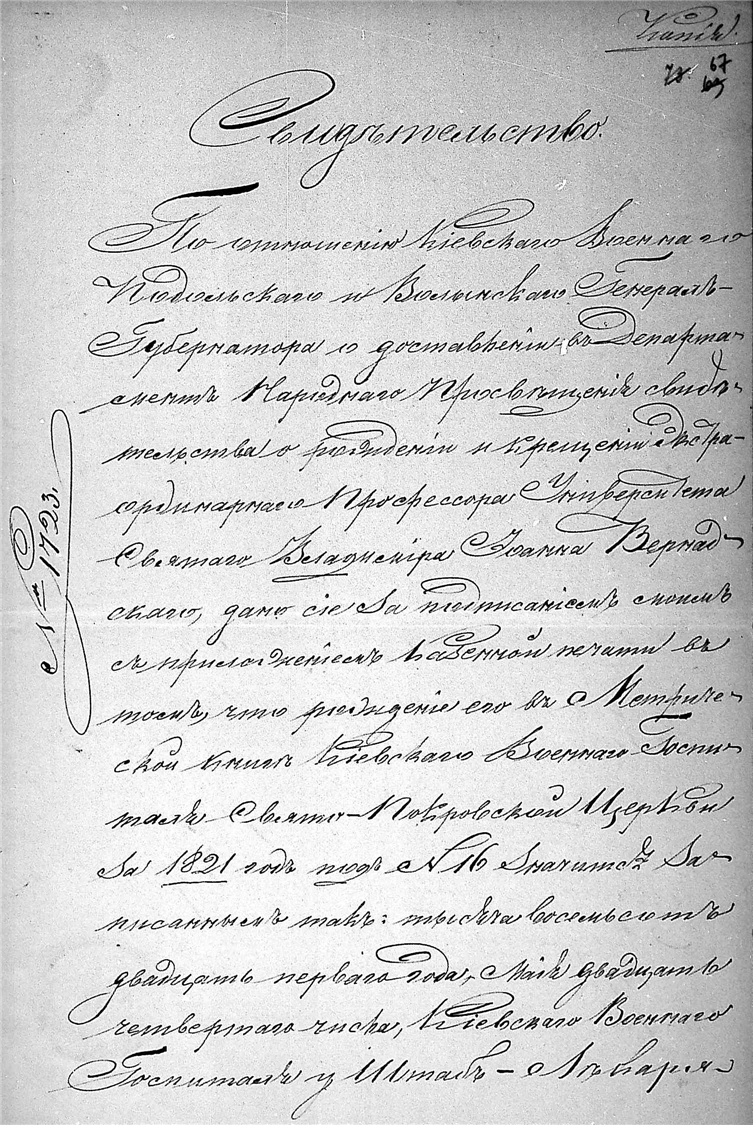 Копія.
67
Свидѣтельство.
По отношенію Кіевскаго Военнаго
Подольскаго и Волынскаго Генералъ-
Губернатора о доставленіи въ Департа-
ментъ Народнаго Просвѣщенія свидѣ-
тельства о рожденіи и крещеніи Экстра-
ординарнаго Профессора Университета
Святаго Владиміра Іоанна Вернад-
скаго, дано сіе за подписаніемъ моимъ
съ приложеніемъ казенной печати въ
томъ, что рожденіе его въ Метриче-
ской книгѣ Кіевскаго Военнаго Госпи-
таля Свято-Покровской Церкви
за 1821 годъ подъ №16 значится за-
писаннымъ такъ: тысяча восемьсотъ
двадцать перваго года, Мая двадцать
четвертаго числа, Кіевскаго Военнаго
Госпиталя у Штабъ-Лѣкаря
№ 1723.